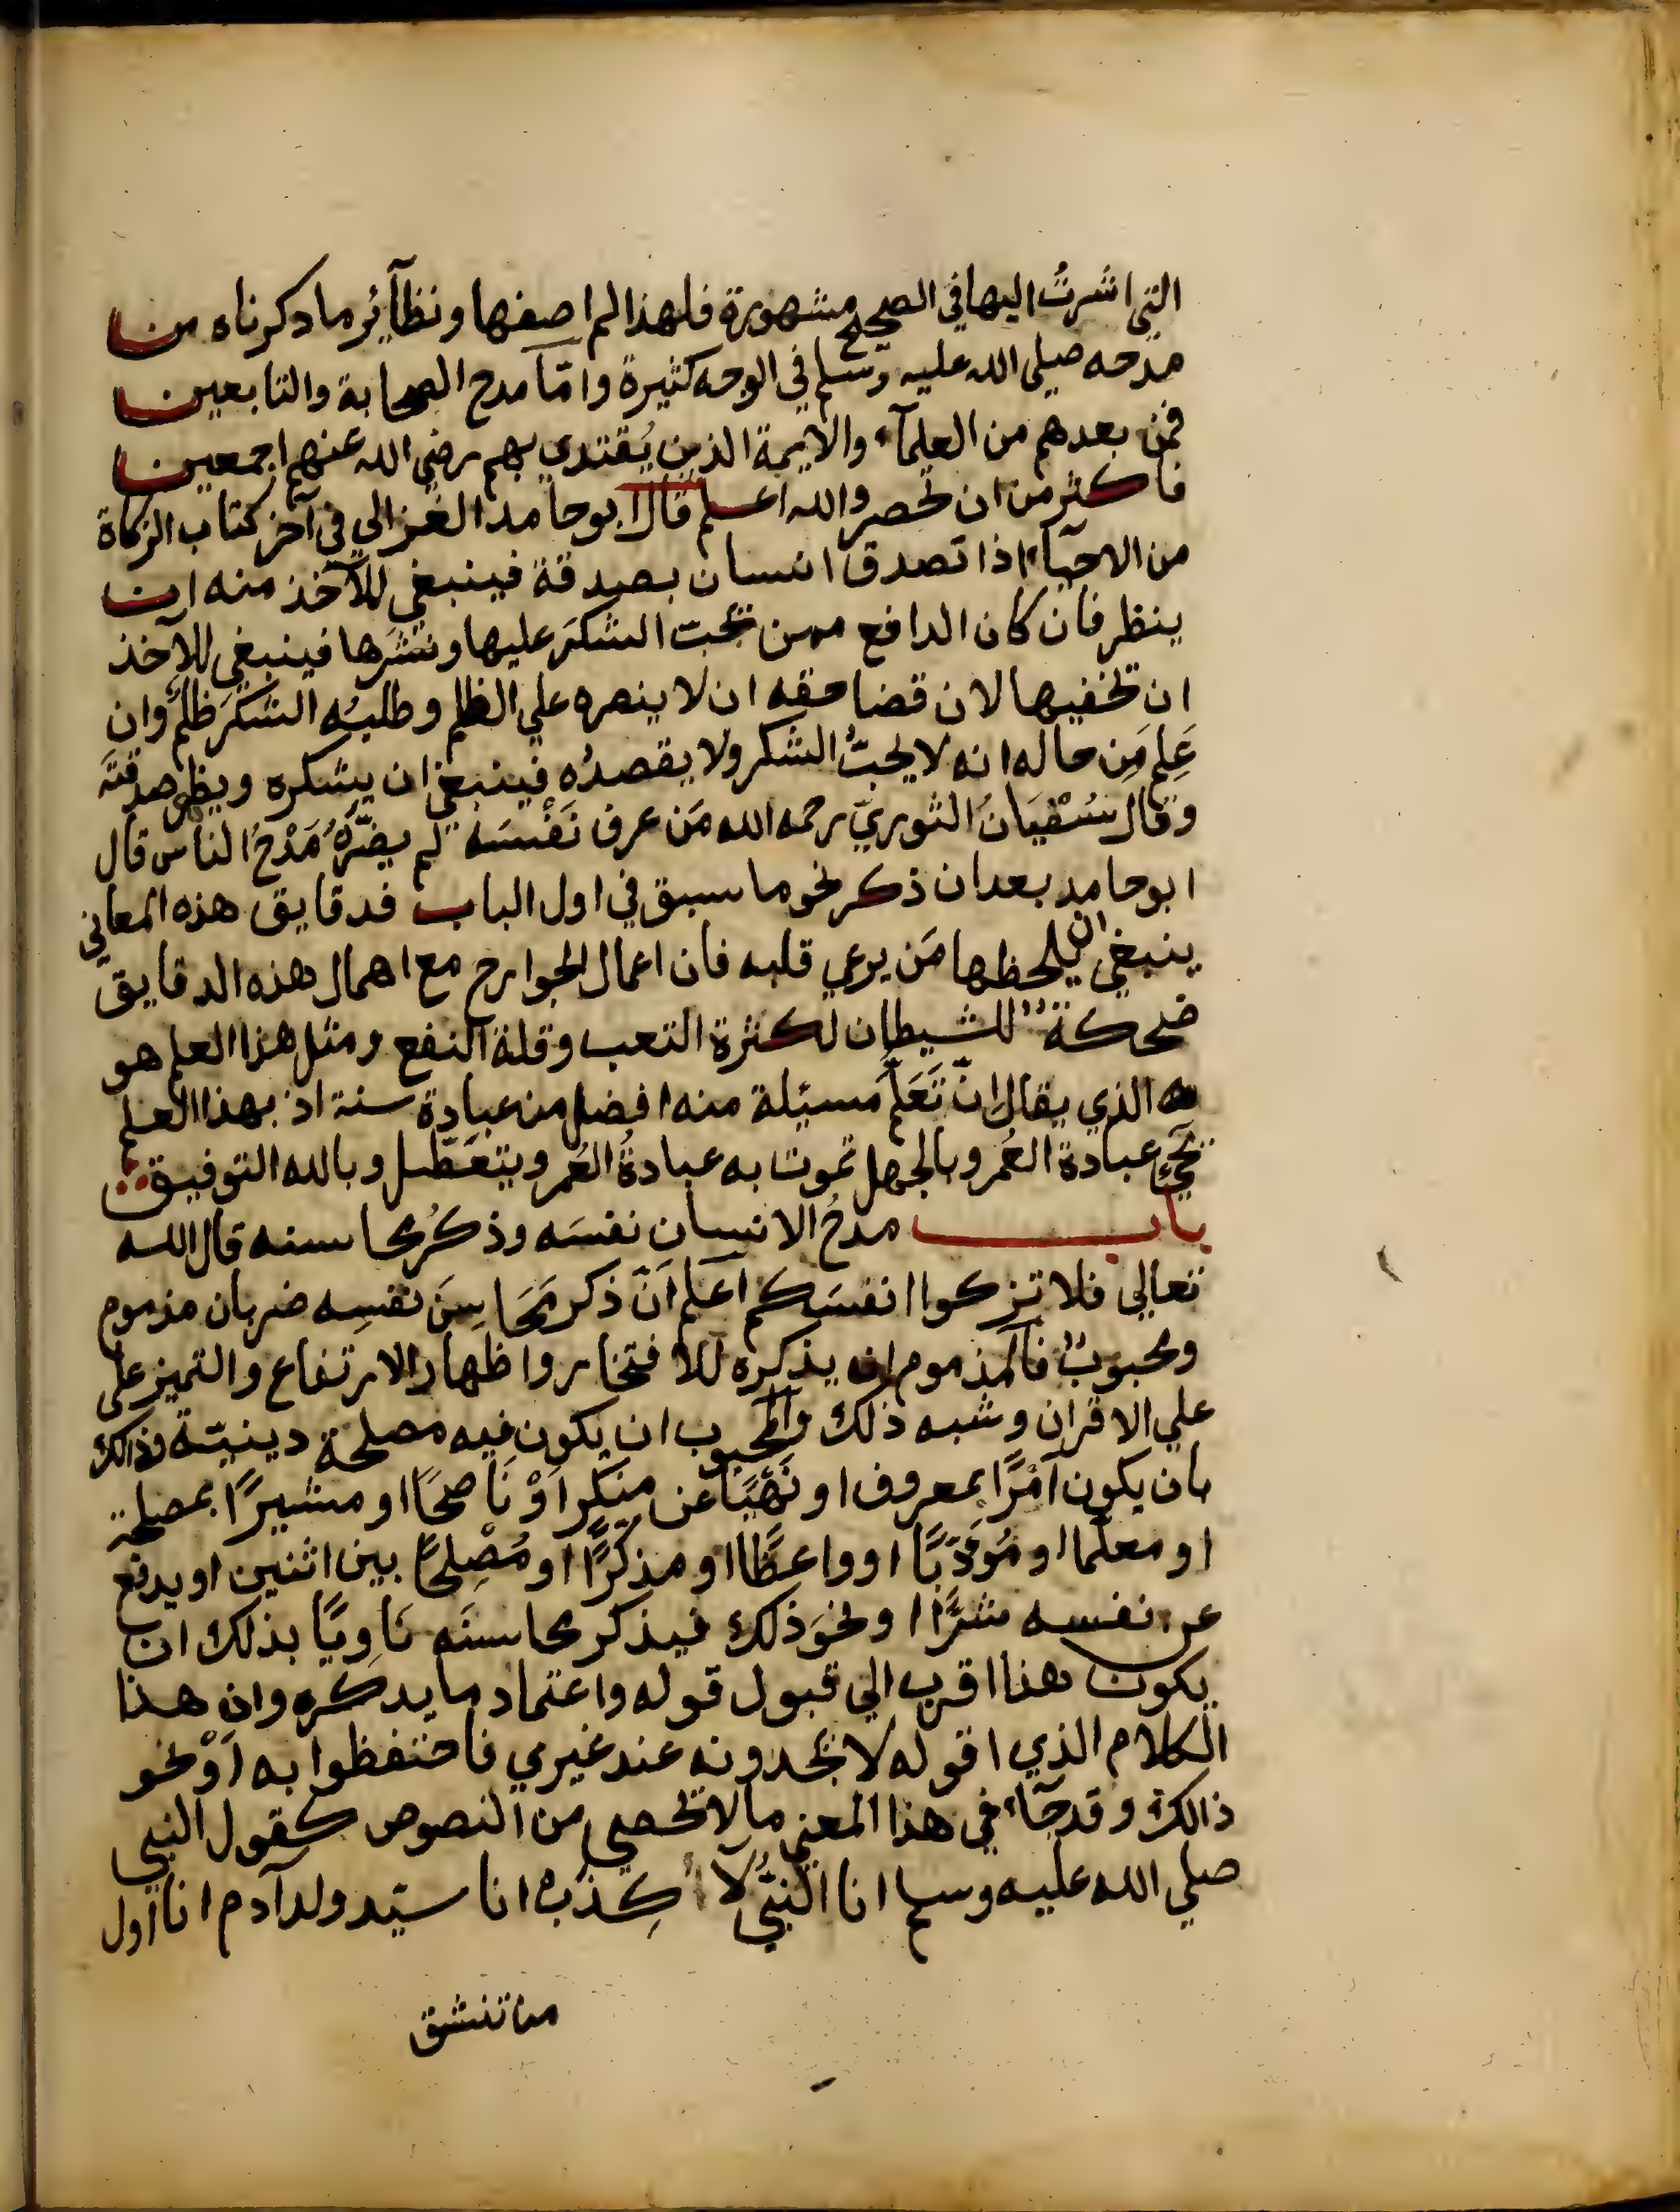 التي اشرتُ اليها في الصحيح مشهورة فلهذا لم اصفها ونظآئر ما دكرناه من
مدحه صلي الله عليه وسلم في الوجه كثيرة وامّا مدح الصحابة والتابعين
فمن بعدهم من العلمآء والايمة الذين يُقتدي بهم رضي الله عنهم اجمعين
فاكثر من ان تحصر والله اعلم قال ابو حامد الغزالي في آخر كتاب الزكاة
من الاحيآء اذا تصدق انسان بصدقة فينبغي للآخذ منه ان
ينظر فان كان الدافع ممن يحب الشكرَ عليها ونشرَها فينبغي للآخذ
ان يخفيها لان قضا حقه ان لا ينصره علي الظلم وطلبُه الشكرَ ظلمٌ وان
عَلِم مَِن حاله انه لا يحبُّ الشكر ولا يقصدُه فينبغي ان يشكره ويظهر صدقتَه
وقال سُفْيَانُ الثوريّ رحمه الله مَن عرف نَفْسَه لم يضرَّهُ مَدْحُ الناس قال
ابو حامد بعد ان ذكر نحو ما سبق في اول الباب فدقايق هذه المعاني
ينبغي ان يلحظها مَن يرعي قلبه فان اعمال الجوارح مع اهمال هذه الدقايق
ضحكة للشيطان لكثرة التعب وقلة النفع ومثل هذا العلم هو
الذي يقال انّ تَعَلّمَ مسيئلة منه افضل من عبادة سنة اذ بهذا العلم
تحيَي عبادة العُمر وبالجهل تموت به عبادةُ العُمر ويتعَطّل وبالله التوفيق
باب مدحُ الانسان نفسَه وذكرُ محاسنه قال الله
تعالي فلا تزكوا انفسَكم اعلم انّ ذكر مَحَاسِنَ نفسِه ضربان مذموم
ومحبوبٌ فالمذموم ان يذكره للافتخار واظهار الارتفاع والتميز علي
علي الاقران وشبه ذلك والمحبوب ان يكون فيه مصلحة دينيّة وذالك
بان يكون آمْرًا بمعروف او نَهْيًا عن منكر اوْ نَاصحًا او مشيرًا بمصلحة
او معلّما او مُوَدّبًا او واعظًا او مذكّرًا او مُصْلِحًا بين اثنين او يدفع
عن نفسه شرًّا ا ونحوَ ذلك فيذكر محاسنَه نَاوِيًا بذلك ان
يكون هذا اقرب الي قبول قوله واعتماد ما يدكره وان هذا
الكلام الذي اقوله لا تجدونه عند غيري فاحتفظوا به اوْ نحو
ذالك وقد جآء في هذا المعني مالا تحصي من النصوص كقول النبي
صلي الله عليه وسلم انا النبيُّ لا اكِذبْ انا سيّد ولد آدم انا اول
من تنشق